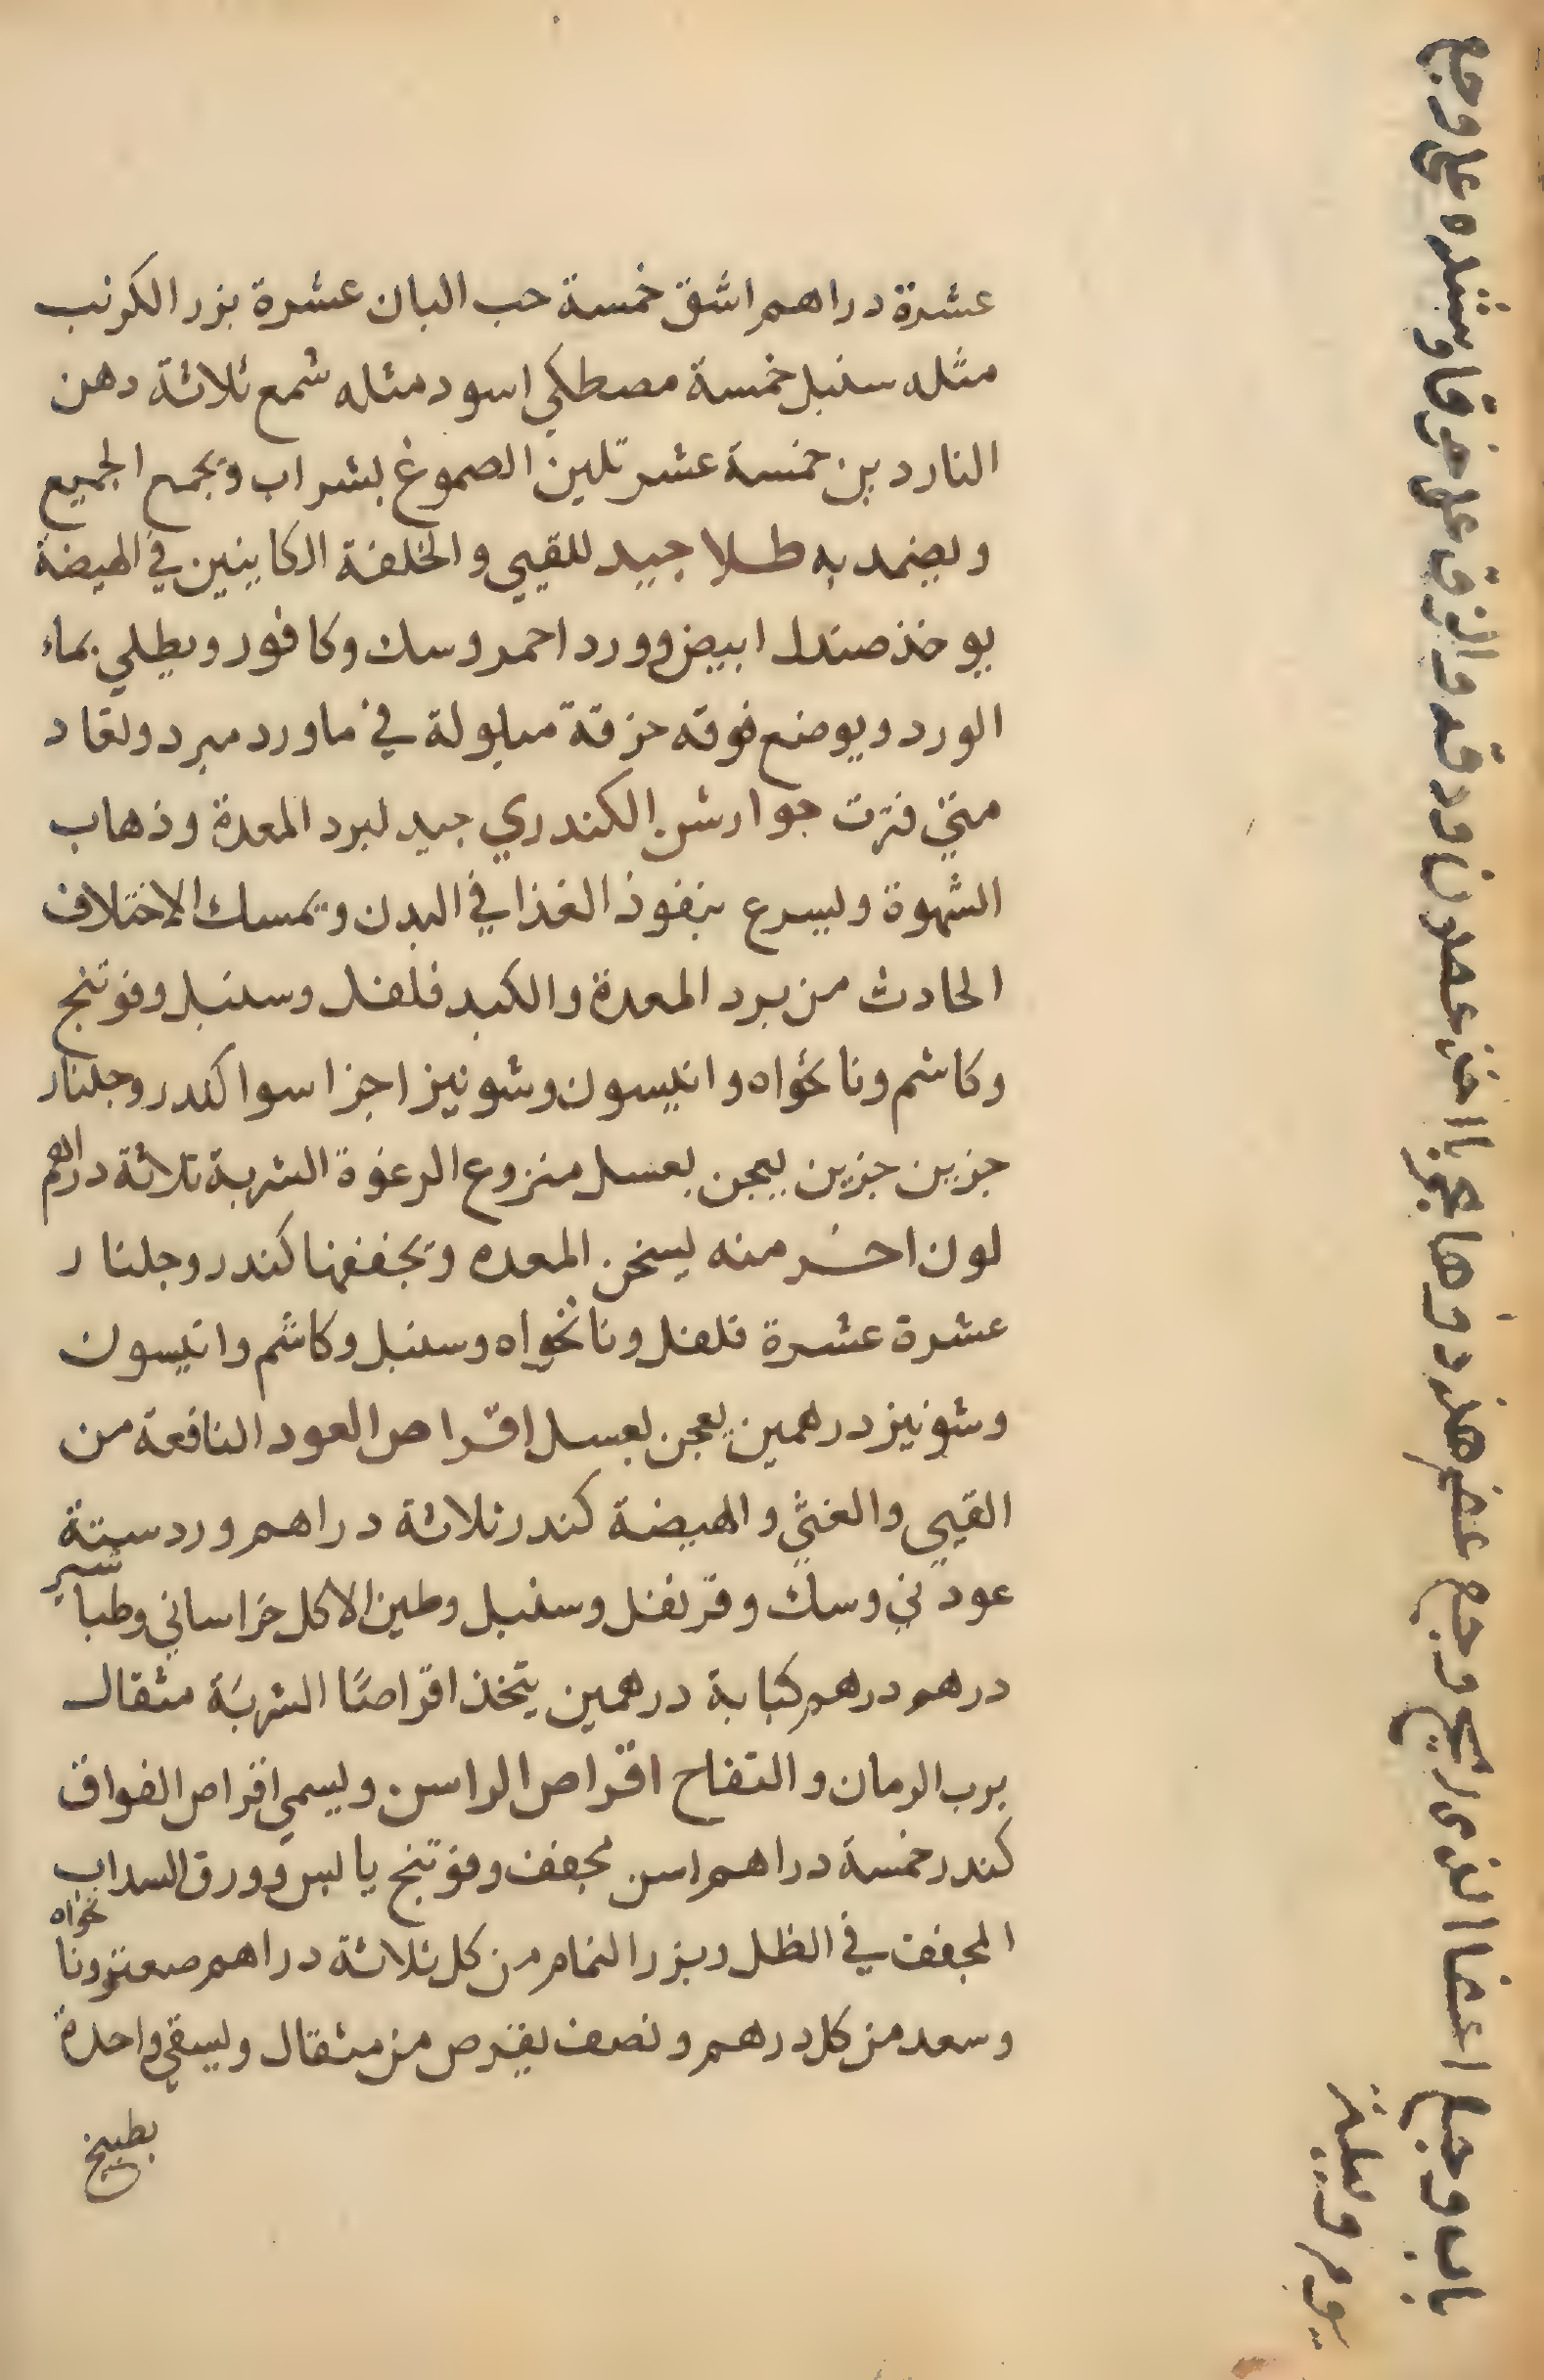 عشرة دراهم اشق خمسة حب البان عشرة بزر الكرنب
مثله سنبل خمسة مصطكي اسود مثله شمع ثلاثة دهن
الناردين خمسة عشر تلين الصموغ بشراب وتجمع الجميع
ويضمد به طلا جيد للقيي والخلفة الكاينين في الهيضة
يوخذ صندل ابيض وورد احمر وسك وكافور ويطلي بماء
الورد ويوضع فوقه خرقة مبلولة في ماورد مبرد وتعاد
متي فترت جوارشن الكندري جيد لبرد المعدة وذهاب
الشهوة ويسرع بنفوذ الغذا في البدن ويمسك الاختلاف
الحادث من برد المعدة والكبد فلفل وسنبل وفوتنج
وكاشم ونانخواه وانيسون وشونيز اجزا سوا كندر وجلنار
جزين جزين يعجن بعسل منزوع الرغوة الشربة ثلاثة دراهم
لون اخر منه يسخن المعده وتجففها كندر وجلنار
عشرة عشرة فلفل ونانخواه وسنبل وكاشم وانيسون
وشونيز درهمين يعجن بعسل اقراص العود النافعة من
القيي والغثي والهيضة كندر ثلاثة دراهم ورد ستة
عود ني وسك وقرنفل وسنبل وطين الاكل خراساني وطباشير
درهم درهم كبابة درهمين يتخذ اقراصا الشربة مثقال
برب الرمان والتفاح اقراص الراسن ويسمي اقراص الفواق
كندر خمسة دراهم راسن مجفف وفوتنج يابس وورق السداب
المجفف في الظل وبزر النمام من كل ثلاثة دراهم صعتر ونانخواه
وسعد من كل درهم ونصف يقرص من مثقال ويسقي واحدة
بطبيخ
باب وجاع اعضا الذى ريح وجع عضر هذ دفرها مجربا اخذ عصا ودقه والزق على خرقا وشده على وجع
يوم وليلة